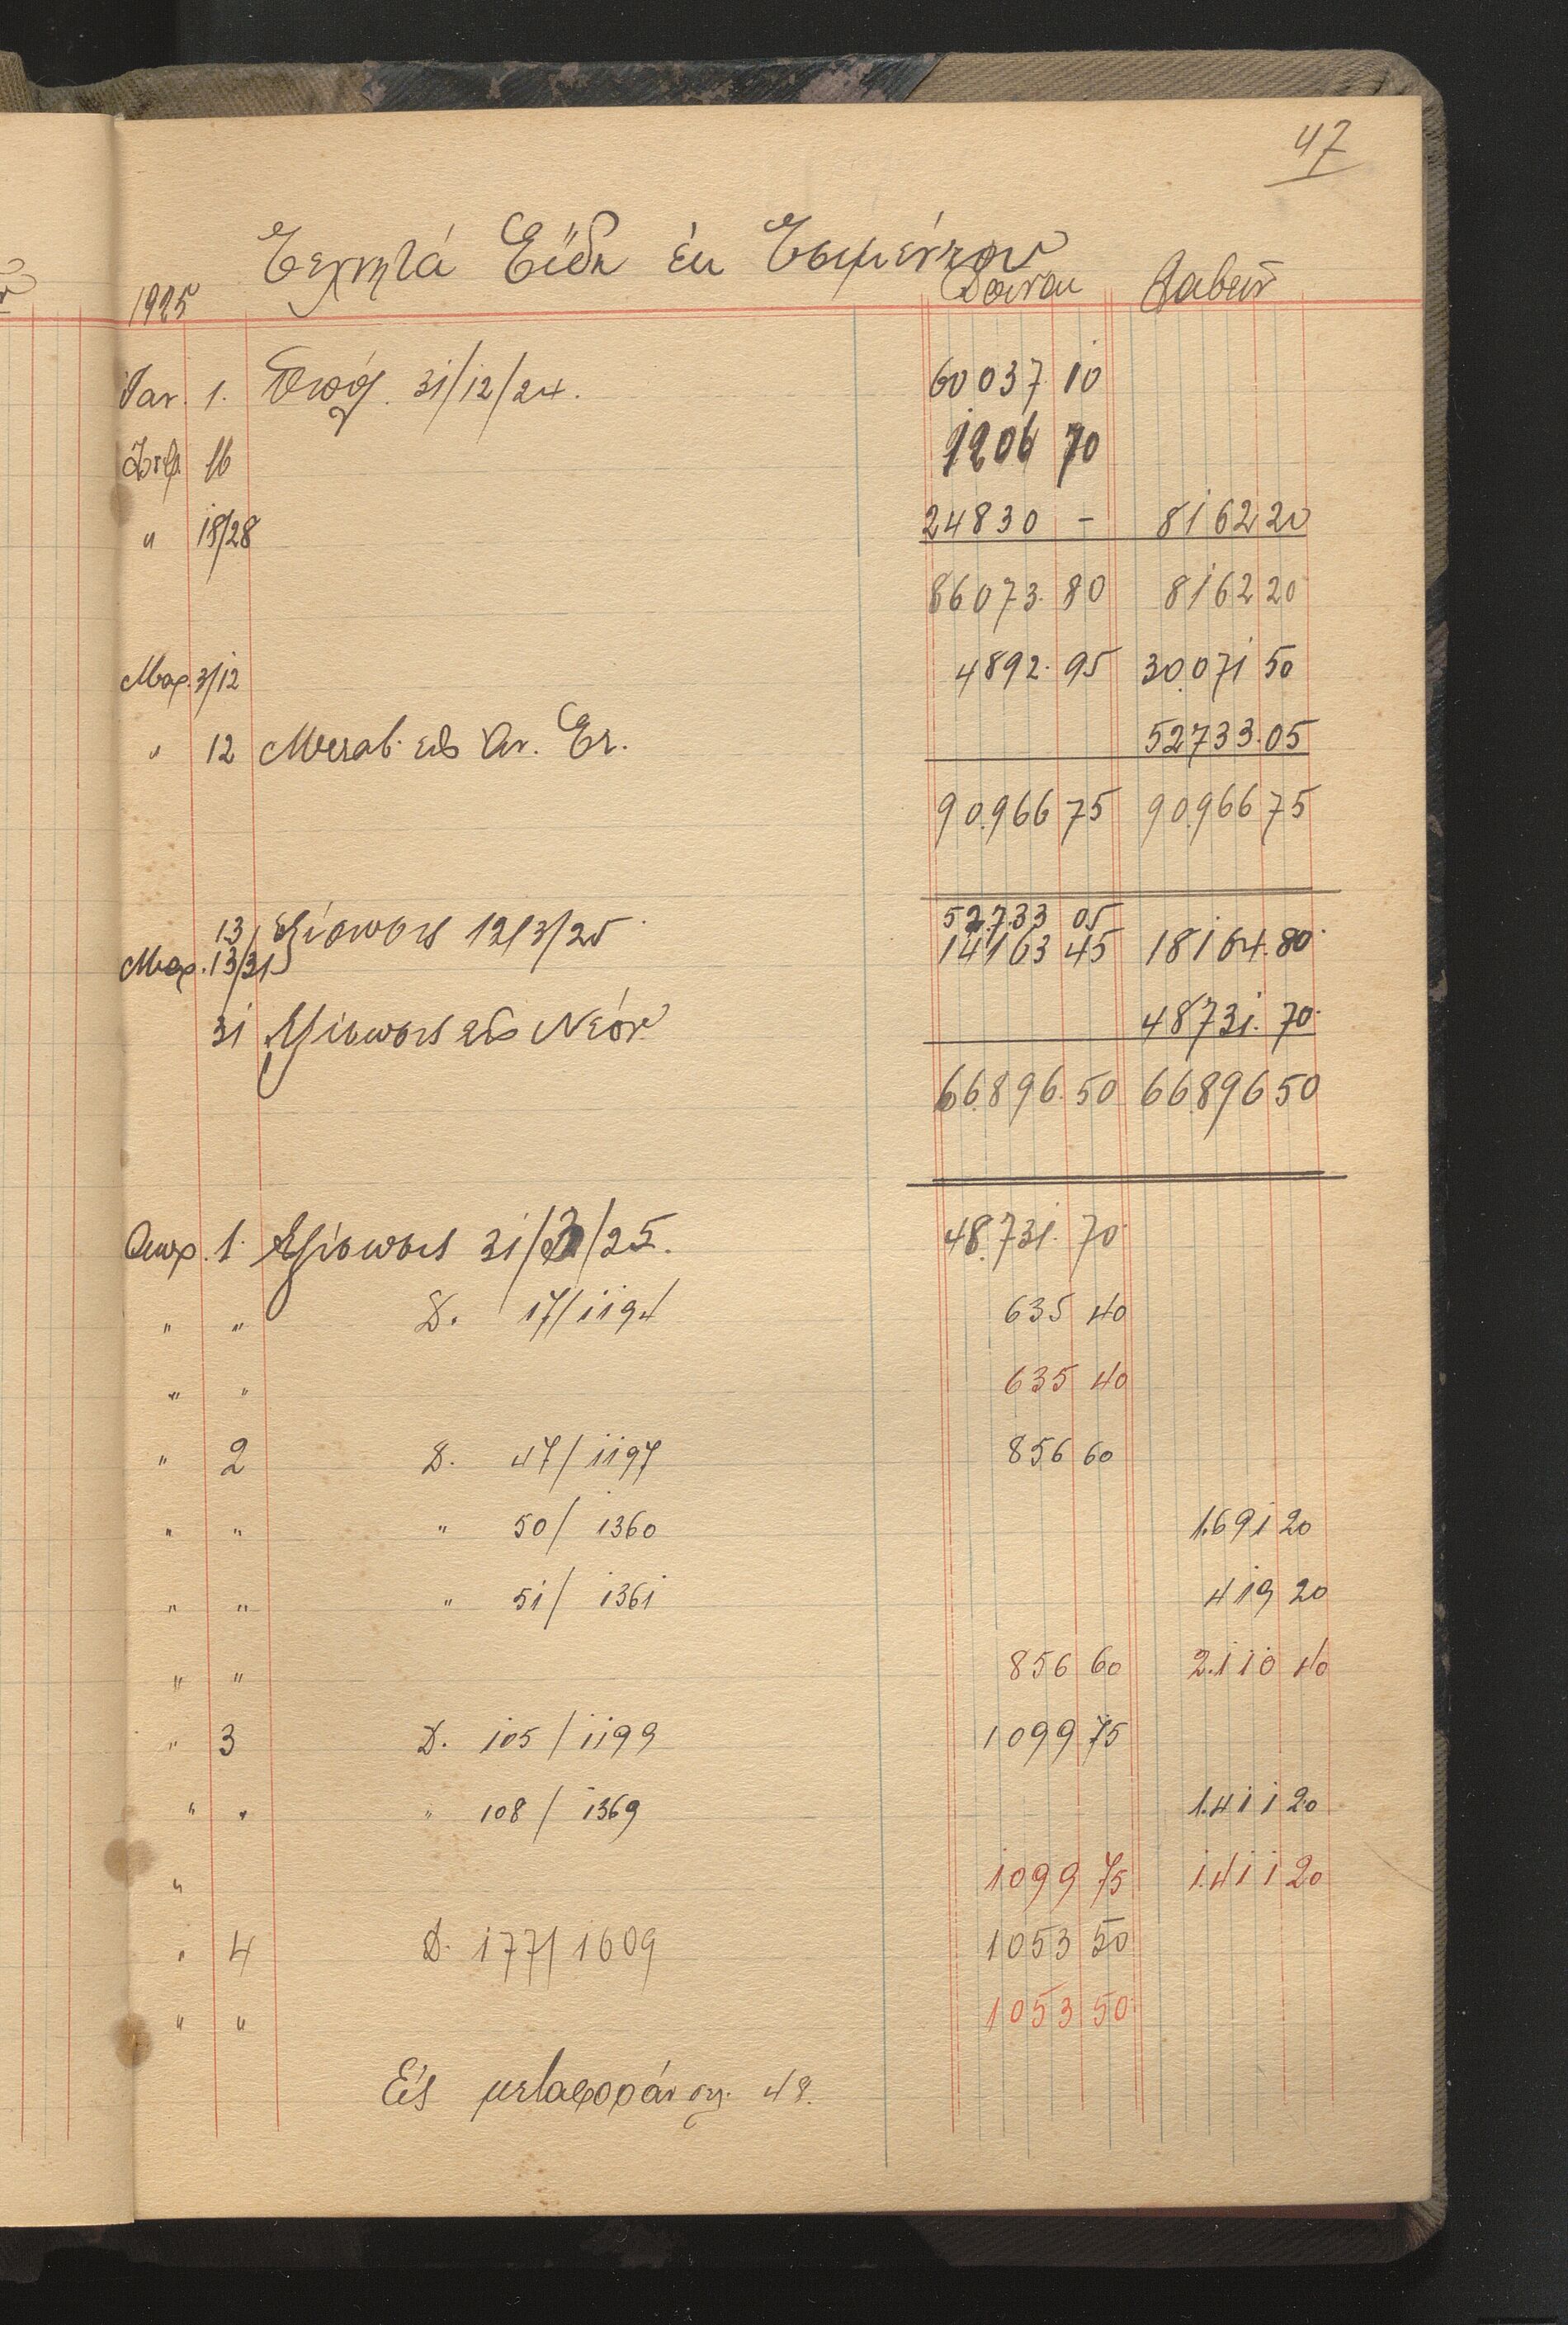 47
Τεχνητά Είδη έκ Τσιμέντου
1925 Δοῦναι Λαβεῖν
Ἰαν. 1. Ὑπόλ. 31/12/24. 60037 10
16 1206 70
" 18/28 24830 - 8162 20
86073. 80 8162 20
Μαρ. 3/12 4892. 95 30.071 50
" 12 Μεταβ. εἰς Ἀν. Ἑτ. 52733.05
90.966 75 90.966 75
13 Εξίσωσις 12/3/25 52.733 05
Μαρ. 13/31 14163 45 18164.80
31 Εξίσωσις εἰς Νέον 48731. 70
66.896. 50 66896 50
Απρ. 1. Εξίσωσις 31/3/25. 48.731. 70
" " Δ. 17/1194 635 40
" " 635 40
" 2 Δ. 47/1197 856 60
" " " 50/1360 1.691 20
" " " 51/1361 419 20
" " 856 60 2.110 40
" 3 Δ. 105/1199 1099.75
" " " 108/1369 1.411 20
" 1099 75 1.411 20
" 4 Δ. 177/1609 1053 50
" " 1053 50
Εἰς μεταφοράν σελ. 48.